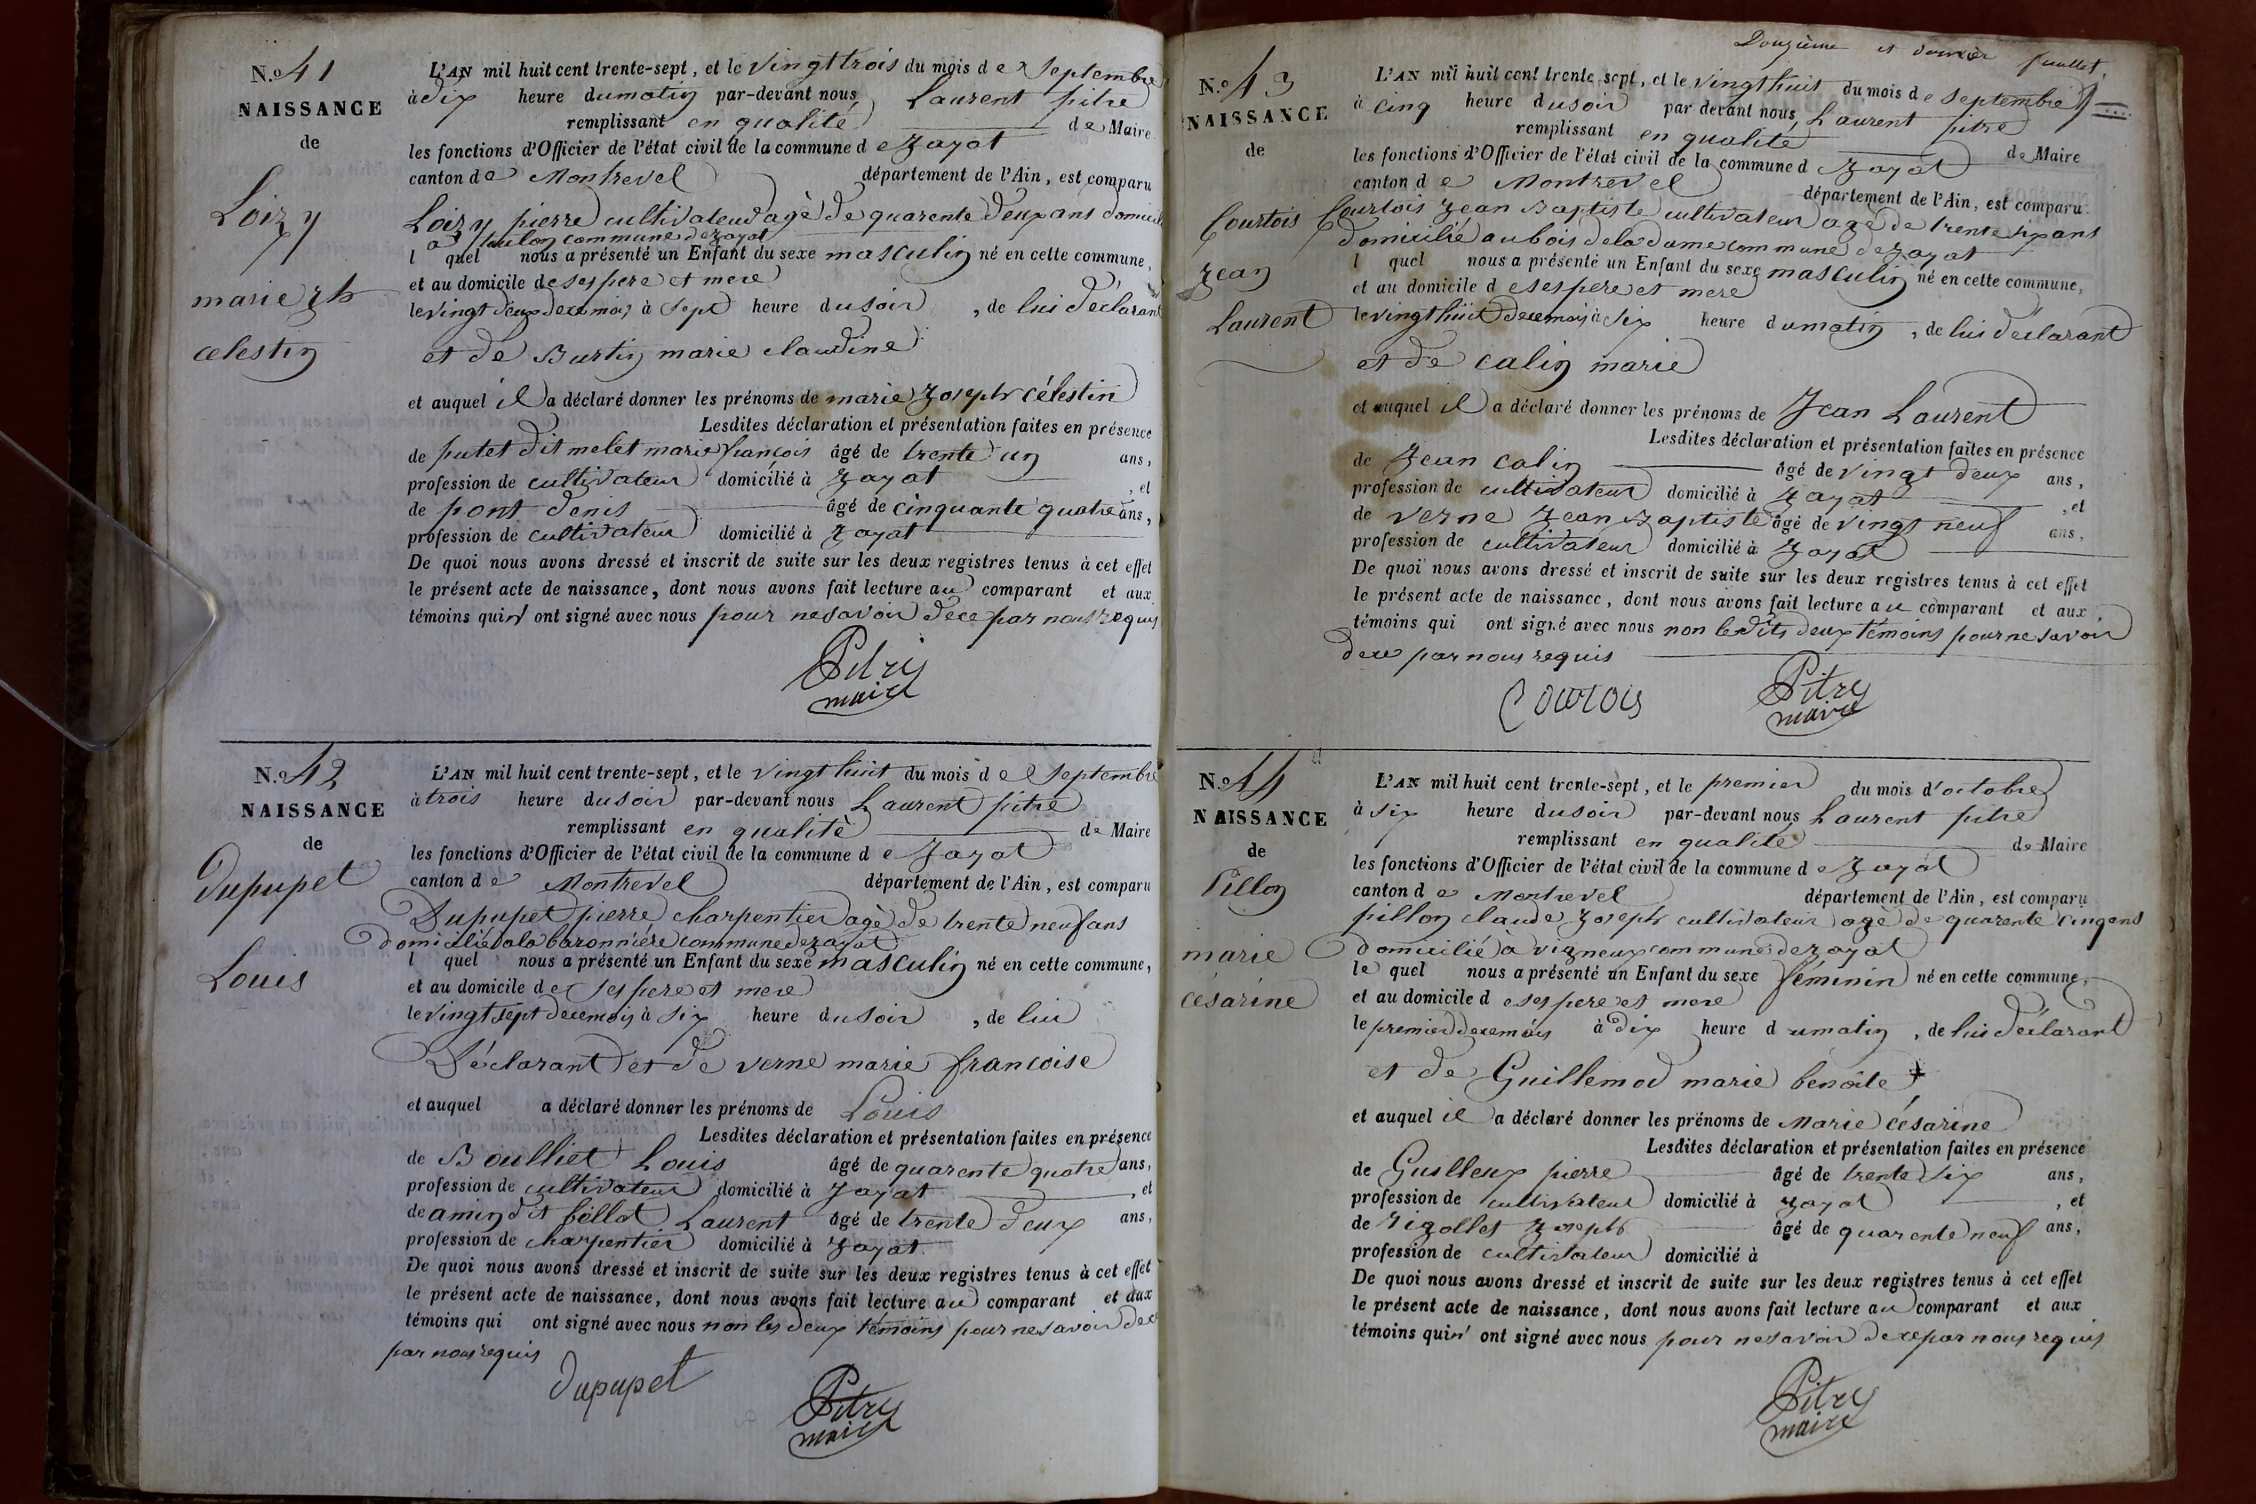 N.o 41
NAISSANCE
de
Loizy
marie jh
celestin
L'AN mil huit cent trente-sept, et le vingt trois du mois de septembre
à dix heure du matin par-devant nous Laurent pitre
remplissant en qualité de Maire
les fonctions d'Officier de l'état civil de la commune de Jayat
canton de Montrevel département de l'Ain, est comparu
Loizy pierre cultivateur agé de quarente deux ans domicilié
a toulon commune de jayat
l quel nous a présenté un Enfant du sexe masculin né en cette commune,
et au domicile de ses pere et mere
le vingt deux de ce mois à sept heure du soir, de lui déclarant
et de Burtin marie claudine
et auquel il a déclaré donner les prénoms de marie Joseph célestin
Lesdites déclaration et présentation faites en présence
de putet dit melet marie françois âgé de trente un ans,
profession de cultivateur domicilié à Jayat, et
de pont denis âgé de cinquante quatre ans,
profession de cultivateur domicilié à Jayat
De quoi nous avons dressé et inscrit de suite sur les deux registres tenus à cet effet
le présent acte de naissance, dont nous avons fait lecture au comparant et aux
témoins qui n' ont signé avec nous pour ne savoir de ce par nous requis
Pitre
maire
N.o 42
NAISSANCE
de
Dupupet
Louis
L'AN mil huit cent trente-sept, et le vingt huit du mois de septembre
à trois heure du soir par-devant nous Laurent pitre
remplissant en qualité de Maire
les fonctions d'Officier de l'état civil de la commune de Jayat
canton de Montrevel département de l'Ain, est comparu
Dupupet pierre charpentier agé de trente neuf ans
domicilié a la baronniére commune de jayat
l quel nous a présenté un Enfant du sexe masculin né en cette commune,
et au domicile de ses pere et mere
le vingt sept de ce mois à six heure du soir, de lui
Déclarant et de verne marie francoise
et auquel a déclaré donner les prénoms de Louis
Lesdites déclaration et présentation faites en présence
de Boulliet Louis âgé de quarente quatre ans,
profession de cultivateur domicilié à Jayat, et
de amin dit bellot Laurent âgé de trente deux ans,
profession de charpentier domicilié à Jayat
De quoi nous avons dressé et inscrit de suite sur les deux registres tenus à cet effet
le présent acte de naissance, dont nous avons fait lecture au comparant et aux
témoins qui ont signé avec nous non les deux témoins pour ne savoir de ce
par nous requis
Dupupet
Pitre
maire
Douzième et dernier feuillet.
N.o 43
NAISSANCE
de
Courtois
Jean
Laurent
L'AN mil huit cent trente-sept, et le vingt huit du mois de septembre
à cinq heure du soir par devant nous Laurent pitre
remplissant en qualité de Maire
les fonctions d'Officier de l'état civil de la commune d Jayat
canton de Montrevel département de l'Ain, est comparu
Courtois Jean Baptiste cultivateur agé de trente six ans
domicilié au bois de la dame commune de Jayat
l quel nous a présenté un Enfant du sexe masculin né en cette commune,
et au domicile de ses pere et mere
le vingt huit de ce mois à six heure du matin, de lui déclarant
et de calin marie
et auquel il a déclaré donner les prénoms de Jean Laurent
Lesdites déclaration et présentation faites en présence
de Jean calin âgé de vingt deux ans,
profession de cultivateur domicilié à Jayat, et
de verne Jean Baptiste âgé de vingt neuf ans,
profession de cultivateur domicilié à Jayat
De quoi nous avons dressé et inscrit de suite sur les deux registres tenus à cet effet
le présent acte de naissance, dont nous avons fait lecture au comparant et aux
témoins qui ont signé avec nous non lesdits deux témoins pour ne savoir
de ce par nous requis
Courtois
Pitre
maire
N.o 44
NAISSANCE
de
Pillon
marie
césarine
L'AN mil huit cent trente-sept, et le premier du mois d'octobre
à six heure du soir par-devant nous Laurent pitre
remplissant en qualité de Maire
les fonctions d'Officier de l'état civil de la commune de Jayat
canton de Montrevel département de l'Ain, est comparu
pillon claude Joseph cultivateur agé de quarente cinq ans
domicilié à vigneux commune de jayat
le quel nous a présenté un Enfant du sexe féminin né en cette commune,
et au domicile de ses pere et mere
le premier de ce mois à dix heure du matin, de lui déclarant
et de Guillemod marie benoite
et auquel il a déclaré donner les prénoms de Marie césarine
Lesdites déclaration et présentation faites en présence
de Guilleux pierre âgé de trente six ans,
profession de cultivateur domicilié à Jayat, et
de Rigollet Joseph âgé de quarente neuf ans,
profession de cultivateur domicilié à
De quoi nous avons dressé et inscrit de suite sur les deux registres tenus à cet effet
le présent acte de naissance, dont nous avons fait lecture au comparant et aux
témoins qui n' ont signé avec nous pour ne savoir de ce par nous requis
Pitre
maire